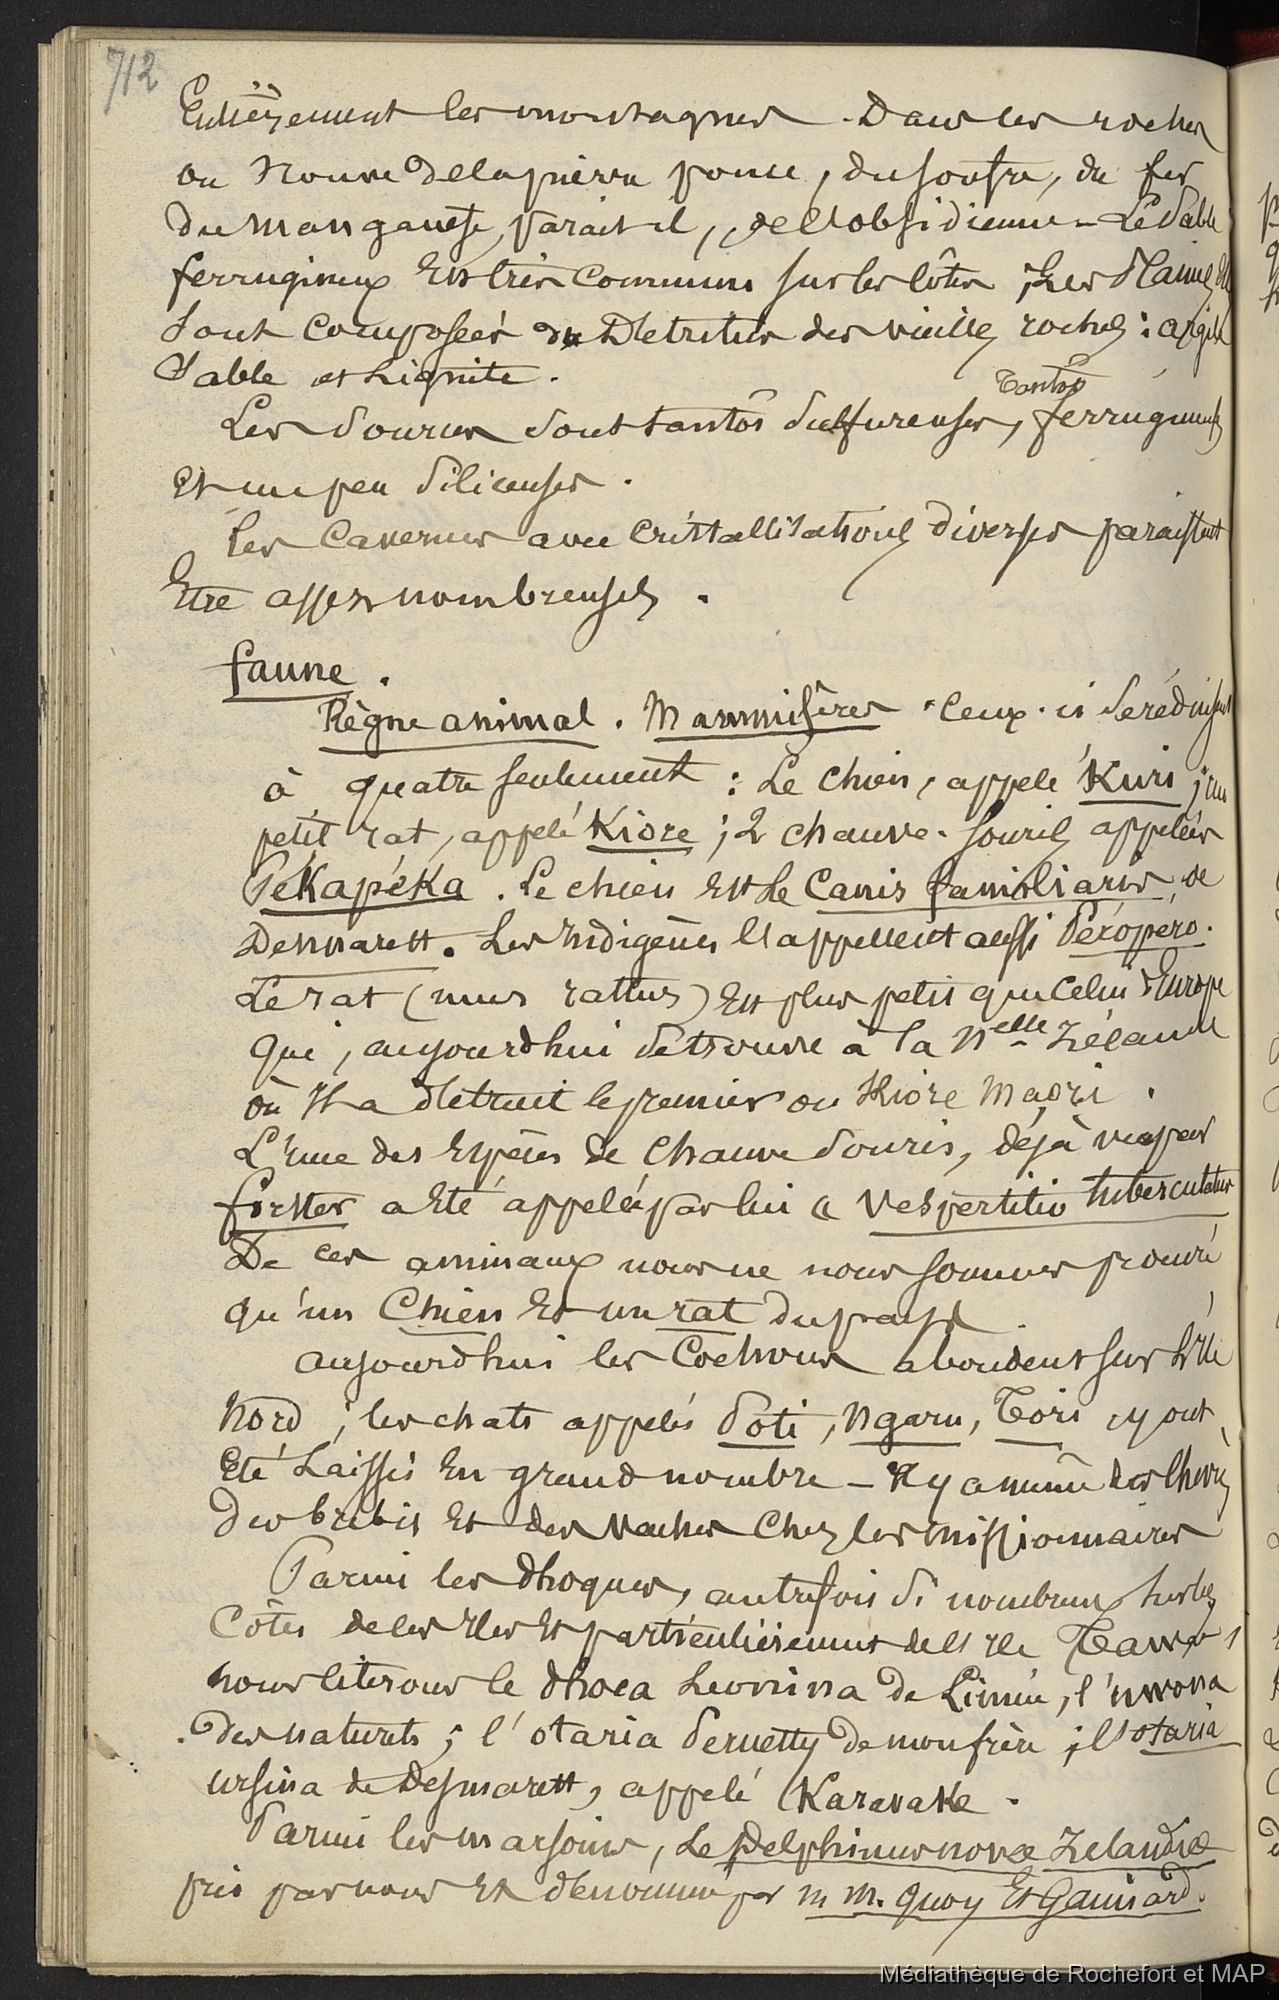 712
Entièrement les montagnes. Dans les roches
on trouve de la pierre ponce, du soufre, du fer
du manganèse, parait-il, de l'obsidienne - Le sable
ferrugineux Est très commun sur les côtes ; Les Plaines
sont composées de Détritus des vieilles roches : argile
sable et Lignite.
Les sources sont tantôt sulfureuses, tantôt ferrugineuses
et un peu siliceuses.
Les Cavernes avec Cristallisations diverses paraissent
Etre assez nombreuses.
faune.
Règne animal. Mammifères. Ceux-ci se réduisent
à quatre seulement : Le chien, appelé Kuri ; un
petit rat, appelé Kiore ; 2 chauve-souris appelées
Pékapéka. Le chien Est Le Canis familiaris de
Desmarest. Les Indigènes l'appellent aussi Péropéro.
Le rat (mus rattus) Est plus petit que Celui d'Europe
qui, aujourd'hui se trouve à la Nelle Zélande
où Il a détruit le premier ou Kiore Maori.
L'une des Espèces de Chauve Souris, déjà vue par
forster a Eté appelée par lui « Vespertilio tuberculatus
De ces animaux nous ne nous sommes procuré
qu'un Chien Et un rat du pays.
aujourd'hui les Cochons abondent sur l'Ile
Nord ; les chats appelés Poti, Ngaru, Tori y ont
Eté Laissés En grand nombre - Il y a même des Chèvres
des brebis Et des vaches Chez les missionnaires
Parmi les Phoques, autrefois si nombreux sur les
Côtes de ces Iles Et particulièrement de l'Ile
nous citerons le Phoca Leonina de Linnée, l'
des naturels ; l'otaria Pernetty de mon frère ; l'otaria
ursina de Desmarest, appelé Karavake.
Parmi les marsouins, Le Delphinus novæ Zelandiæ
pris par nous Et dénommé par M M. Quoy Et Gaimard.
Médiathèque de Rochefort et MAP